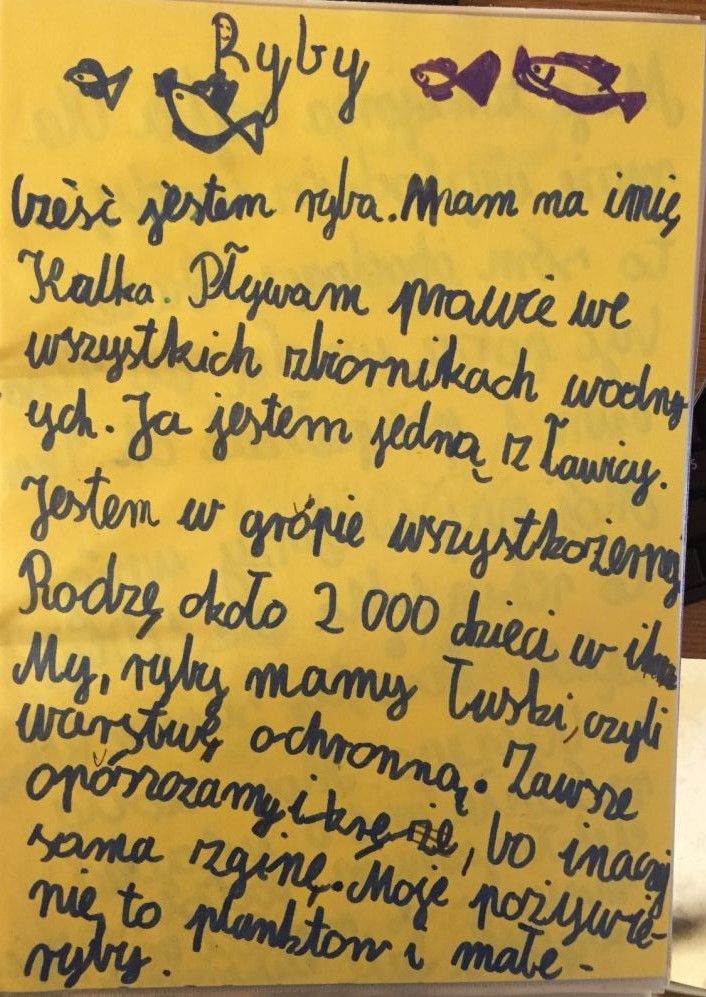 Ryby
Cześć jestem ryba. Mam na imię
Kalka. Pływam prawie we
wszystkich zbiornikach wodny
ych. Ja jestem jedną z ławicy.
Jestem w grópie wszystkożerną
Rodzę około 2 000 dzieci w
My, ryby mamy łuski, czyli
warstwę ochronną. Zawsze
opószczamy ikrę, bo inaczej
sama zginę. Moje pożywie-
nie to plankton i małe -
ryby.